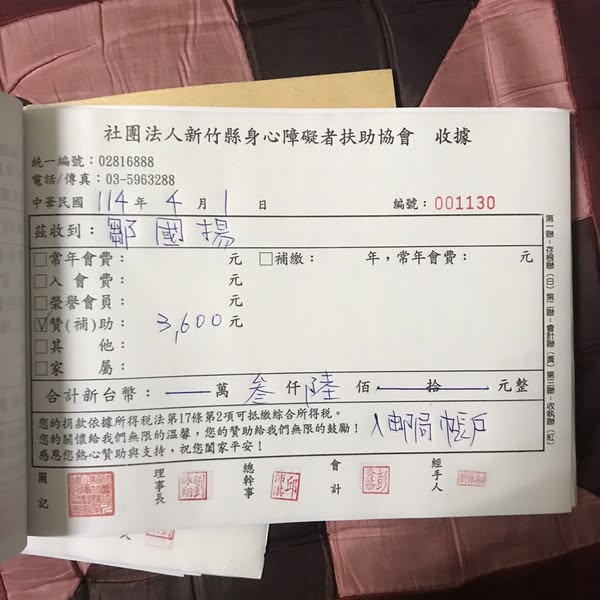 社團法人新竹縣身心障礙者扶助協會 收據
統一編號：02816888
電話/傳真：03-5963288
中華民國 114 年 4 月 1 日 編號：001130
茲收到：鄒國揚
□常年會費： 元 □補繳： 年，常年會費： 元
□入會費： 元
□榮譽會員： 元
☑贊(補)助： 3,600元
□其 他：
□家 屬：
合計新台幣：—萬叁仟陸佰—拾—元整
您的捐款依據所得稅法第17條第2項可抵繳綜合所得稅。
您的關懷給我們無限的溫馨，您的贊助給我們無限的鼓勵！
感恩您熱心贊助與支持，祝您闔家平安！
入郵局帳戶
圖記 理事長 總幹事 會計 經手人
第一聯-存根聯(白) 第二聯-會計聯(黃) 第三聯-收執聯(紅)